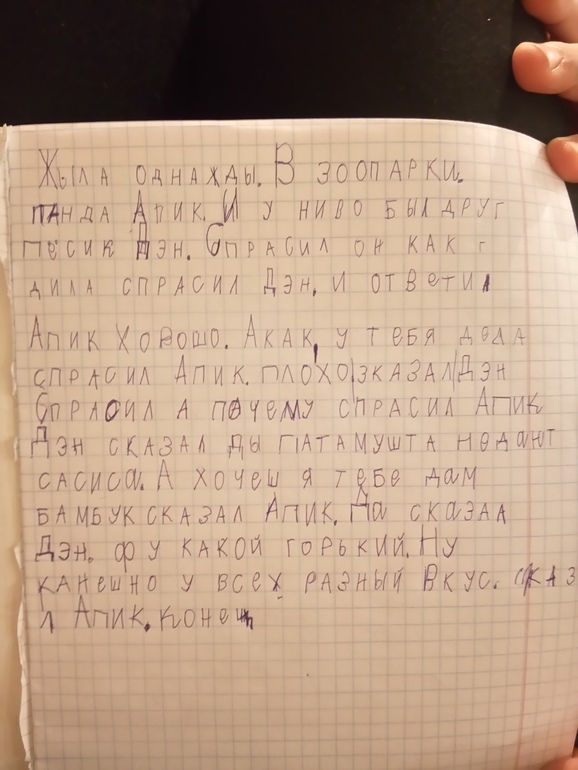 Жыла однажды. В зоопарки.
панда Апик. И у ниво был друг
песик Дэн. Спрасил он как
дила спрасил Дэн, и ответил
Апик хорошо. Акак, у тебя дела
спрасил Апик. плохо зказал Дэн
Спрасил а почему спрасил Апик
Дэн сказал ды патамушта недают
сасиса. А хочеш я тебе дам
бамбук сказал Апик. Да сказал
Дэн. фу какой горький. Ну
канешно у всех разный вкус. сказ
л Апик. конец